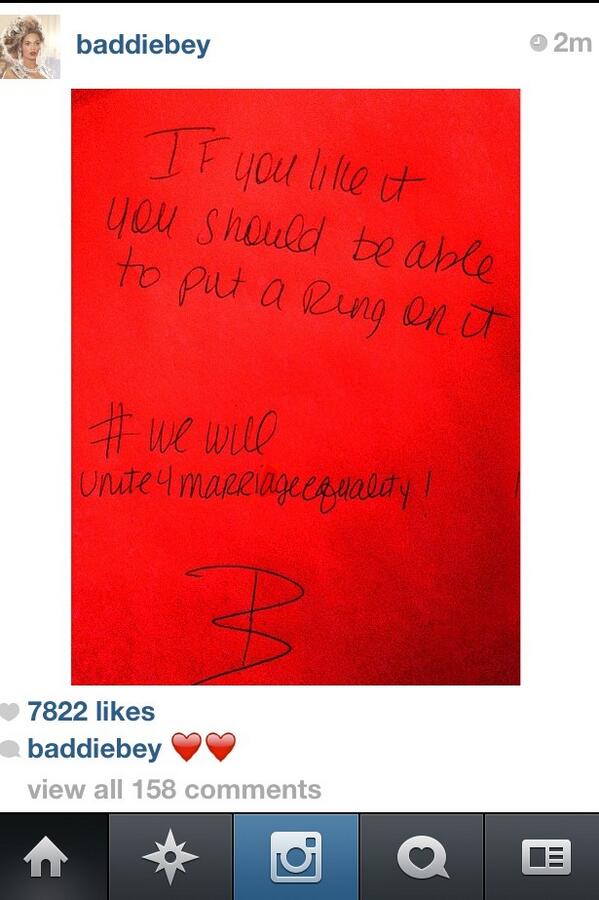 baddiebey
2m
IF you like it
you should be able
to put a Ring on it
# we will
unite4marriageequality!
B
7822 likes
baddiebey ❤️❤️
view all 158 comments